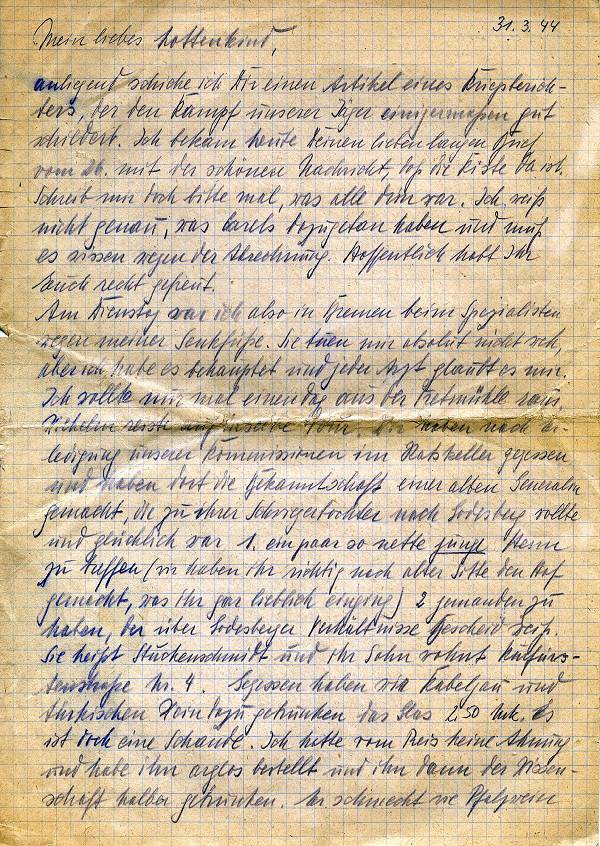 31.3.44
Mein liebes Lottenkind,
anliegend schicke ich Dir einen Artikel eines Kriegsberich-
ters, der den Kampf unserer Jäger einigermaßen gut
schildert. Ich bekam heute Deinen lieben langen Brief
vom 26. mit der schönen Nachricht, daß die Kiste da ist.
Schreib mir doch bitte mal, was alle drin war. Ich weiß
nicht genau, was dazugetan haben und muß
es wissen wegen der Abrechnung. Hoffentlich habt Ihr
Euch recht gefreut.
Am Dienstag war ich also in Bremen beim Spezialisten
wegen meiner Senkfüße. Sie tuen mir absolut nicht weh,
aber ich habe es behauptet und jeder Arzt glaubt es mir.
Ich wollte nur mal einen Tag aus der Tretmühle raus.
Wilhelm reiste auf Tour. Wir haben nach Er-
ledigung unserer Kommissionen im Ratskeller gegessen
und haben dort die Bekanntschaft einer alten Generalin
gemacht, die zu ihrer Schwiegertochter nach Godesberg wollte
und glücklich war 1. ein paar so nette junge Herrn
zu treffen (wir haben ihr richtig nach alter Sitte den Hof
gemacht, was ihr gar lieblich einging) 2 jemanden zu
haben, der über Godesberger Verhältnisse Bescheid weiß.
Sie heißt Stuckenschmidt und ihr Sohn wohnt Kurfürs-
tenstraße Nr. 4. Gegessen haben wir Kabeljau und
türkischen Wein dazu getrunken das Glas 2,50 Mk. Es
ist doch eine Schande. Ich hatte vom Preis keine Ahnung
und habe ihn arglos bestellt und ihn dann der Wissen-
schaft halber getrunken. Er schmeckt wie Pfalzwein